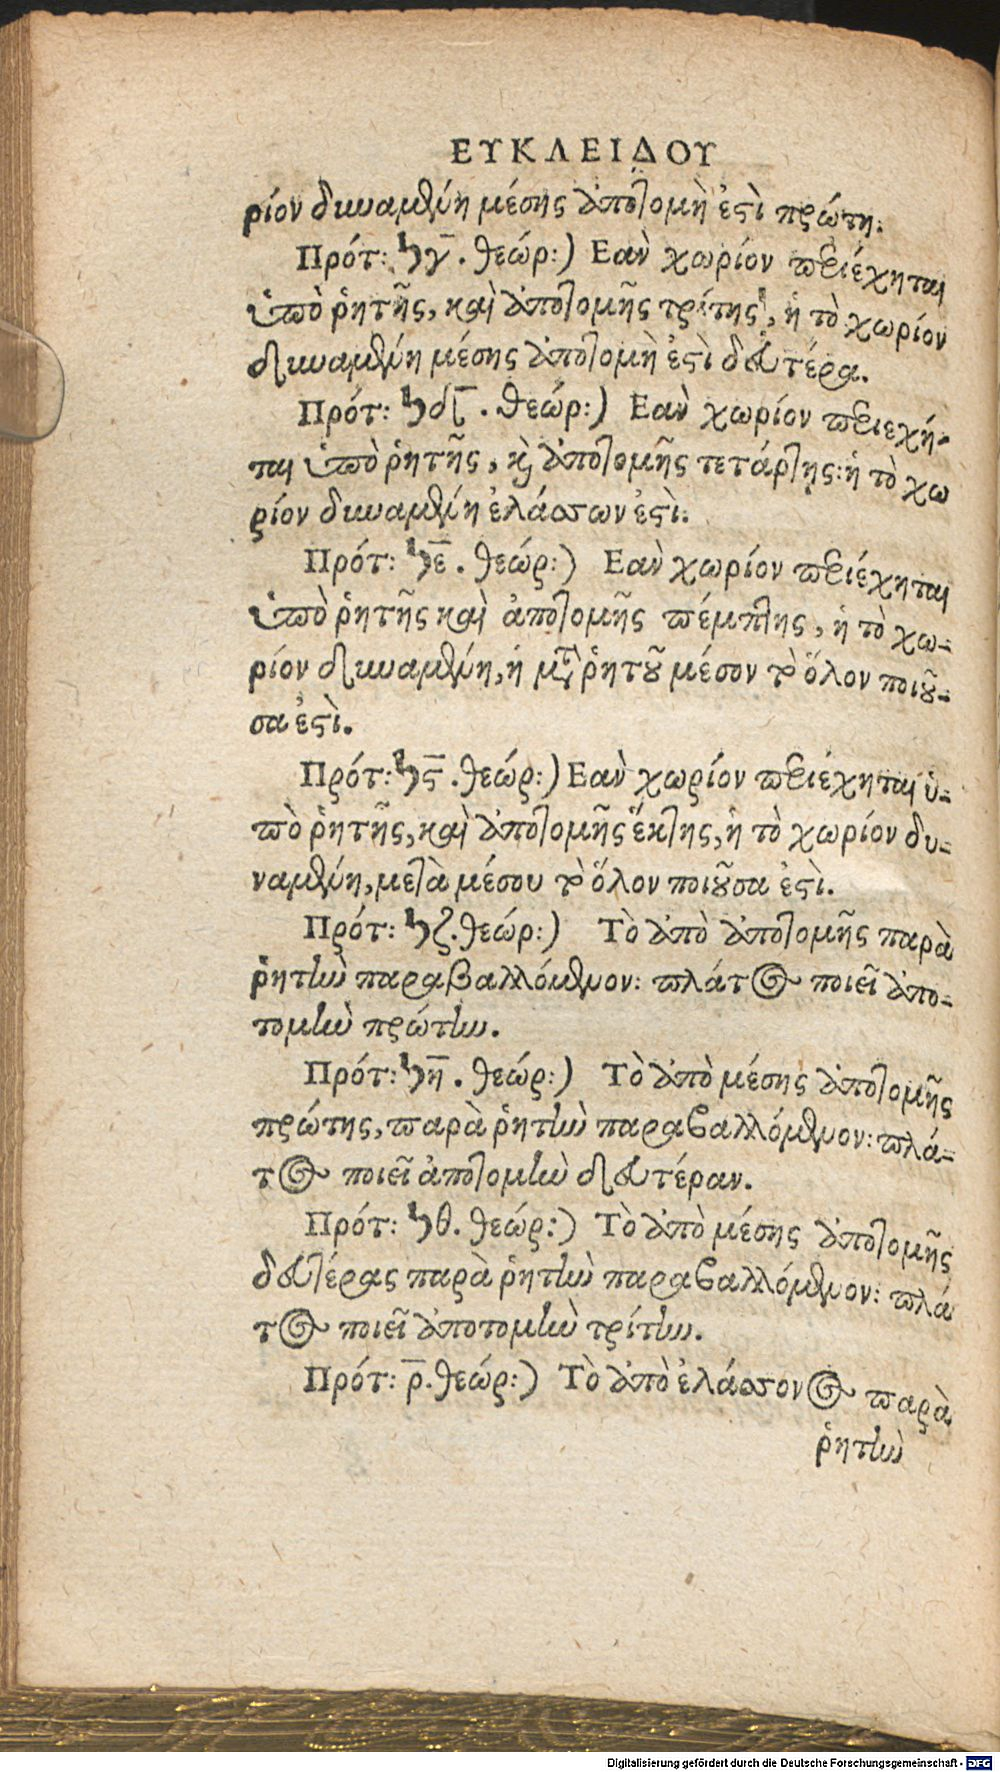 ΕΥΚΛΕΙΔΟΥ
ρίον δυναμένη μέσης ἀποτομὴ ἐστὶ πρώτη.
Πρότ: ϟγ̄. θεώρ:) Εαν χωρίον περιέχηται
ὑπὸ ῥητῆς, καὶ ἀποτομῆς τρίτης, ἡ τὸ χωρίον
δυναμένη μέσης ἀποτομὴ ἐστὶ δευτέρα.
Πρότ: ϟδ̄. θεώρ:) Εαν χωρίον περιεχή-
ται ὑπὸ ῥητῆς, καὶ ἀποτομῆς τετάρτης: ἡ τὸ χω
ρίον δυναμένη ἐλάσσων ἐστὶ.
Πρότ: ϟε̄. θεώρ:) Εαν χωρίον περιέχηται
ὑπὸ ῥητῆς καὶ ἀποτομῆς πέμπτης, ἡ τὸ χω-
ρίον δυναμένη, ἡ μετὰ ῥητοῦ μέσον τὸ ὅλον ποιοῦ-
σα ἐστὶ.
Πρότ: ϟϛ̄. θεώρ:) Εαν χωρίον περιέχηται ὑ-
πὸ ῥητῆς, καὶ ἀποτομῆς ἕκτης, ἡ τὸ χωρίον δυ-
ναμένη, μετὰ μέσου τὸ ὅλον ποιοῦσα ἐστὶ.
Πρότ: ϟζ. θεώρ:) Τὸ ἀπὸ ἀποτομῆς παρὰ
ῥητὴν παραβαλλόμενον: πλάτος ποιεῖ ἀπο-
τομὴν πρώτην.
Πρότ: ϟη̄. θεώρ:) Τὸ ἀπὸ μέσης ἀποτομῆς
πρώτης, παρὰ ῥητὴν παραβαλλόμενον: πλά-
τος ποιεῖ ἀποτομὴν δευτέραν.
Πρότ: ϟθ. θεώρ:) Τὸ ἀπὸ μέσης ἀποτομῆς
δευτέρας παρὰ ῥητὴν παραβαλλόμενον: πλά
τος ποιεῖ ἀποτομὴν τρίτην.
Πρότ: ρ̄. θεώρ:) Τὸ ἀπὸ ἐλάσσονος παρὰ
ῥητὴν
Digitalisierung gefördert durch die Deutsche Forschungsgemeinschaft - DFG